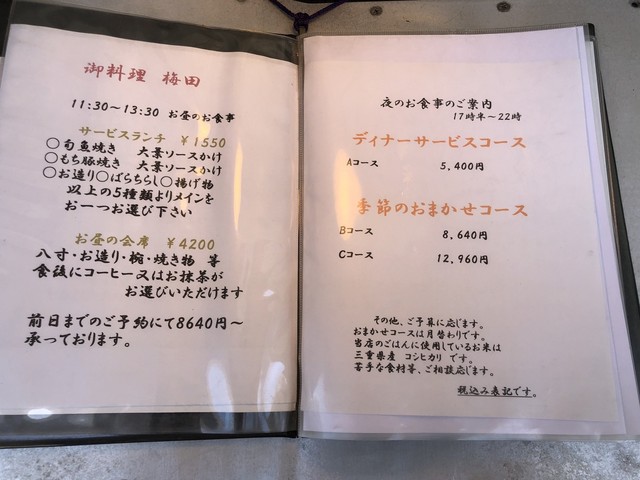 御料理 梅田
11:30～13:30 お昼のお食事
サービスランチ ￥1550
○旬魚焼き 大葉ソースかけ
○もち豚焼き 大葉ソースかけ
○お造り○ばらちらし○揚げ物
以上の5種類よりメインを
お一つお選び下さい
お昼の会席 ￥4200
八寸・お造り・椀・焼き物 等
食後にコーヒー又はお抹茶が
お選びいただけます
前日までのご予約にて8640円～
承っております。
夜のお食事のご案内
17時半～22時
ディナーサービスコース
Aコース 5,400円
季節のおまかせコース
Bコース 8,640円
Cコース 12,960円
その他、ご予算に応じます。
おまかせコースは月替わりです。
当店のごはんに使用しているお米は
三重県産 コシヒカリ です。
苦手な食材等、ご相談応じます。
税込み表記です。